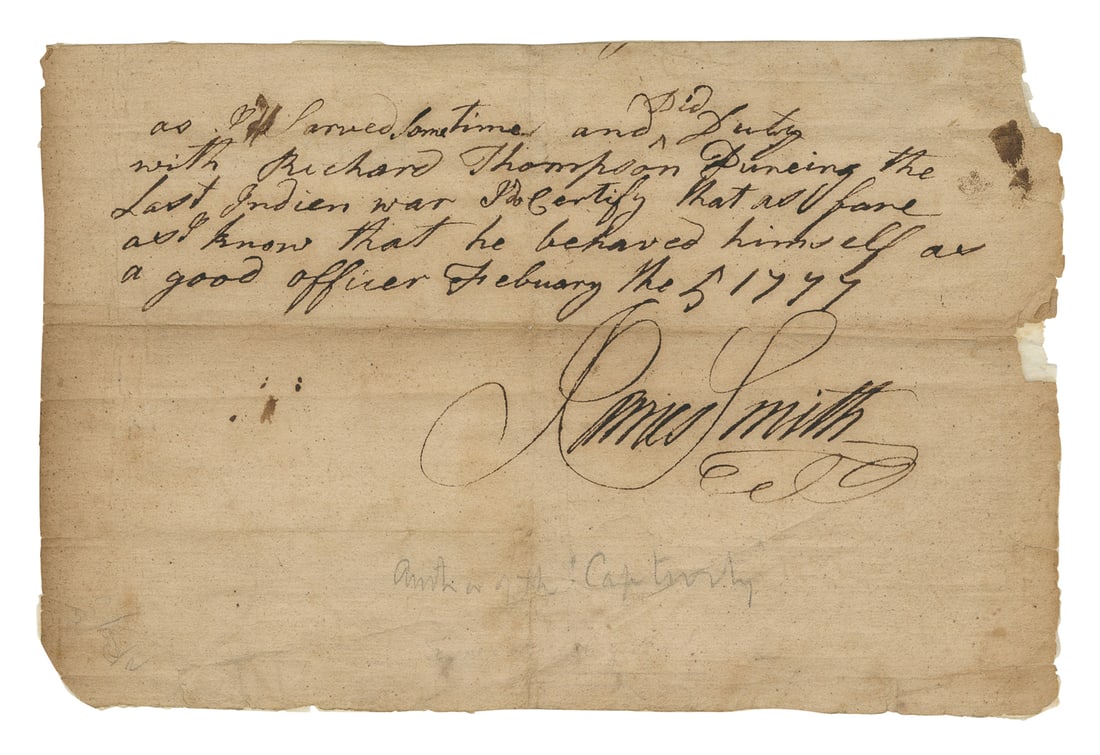 as I Sarved Some time and Did Duty
with Richard Thompson Dureing the
Last Indien war I do Certify that as fare
as I know that he behaved himself as
a good officer Febuary the 5 1777
James Smith
Author of the "Captivity"